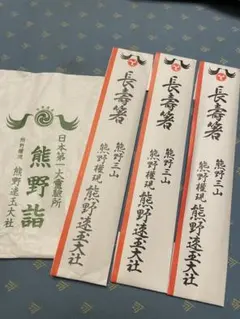 日本第一大霊験所
熊野権現
熊野詣
熊野速玉大社
長寿箸
熊野三山
熊野権現熊野速玉大社
長寿箸
熊野三山
熊野権現熊野速玉大社
長寿箸
熊野三山
熊野権現熊野速玉大社